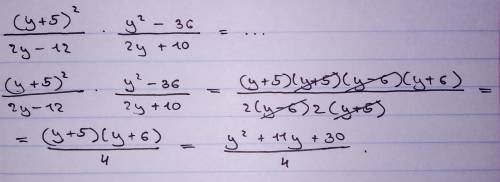 (y+5)² / 2y-12 · y² - 36 / 2y + 10 = ...
(y+5)² / 2y-12 · y²-36 / 2y+10 = (y+5)(y+5)(y-6)(y+6) / 2(y-6)2(y+5) =
= (y+5)(y+6) / 4 = y² + 11y + 30 / 4 .